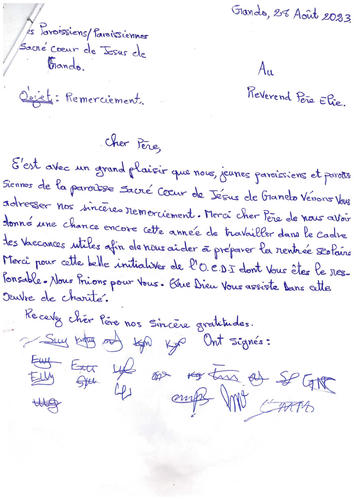 Gando, 28 Août 2023
es Paroissiens/Paroissiennes
Sacré Coeur de Jesus de
Gando.
Au
Reverend Père Elie.
Objet: Remerciement.
Cher Père,
C'est avec un grand plaisir que nous, jeunes paroissiens et parois
siennes de la paroisse Sacré Coeur de Jésus de Gando Venons Vous
adresser nos sincères remerciement. Merci cher Père de nous avoir
donné une chance encore cette année de travailler dans le cadre
des Vaccances utiles afin de nous aider à préparer la rentrée scolaire
Merci pour cette belle initiative de l'O.C.D.I dont Vous êtes le res-
ponsable. Nous Prions pour Vous. Que Dieu Vous assiste dans cette
oeuvre de charité.
Recevez cher Père nos sincère gratitudes.
Ont signés: